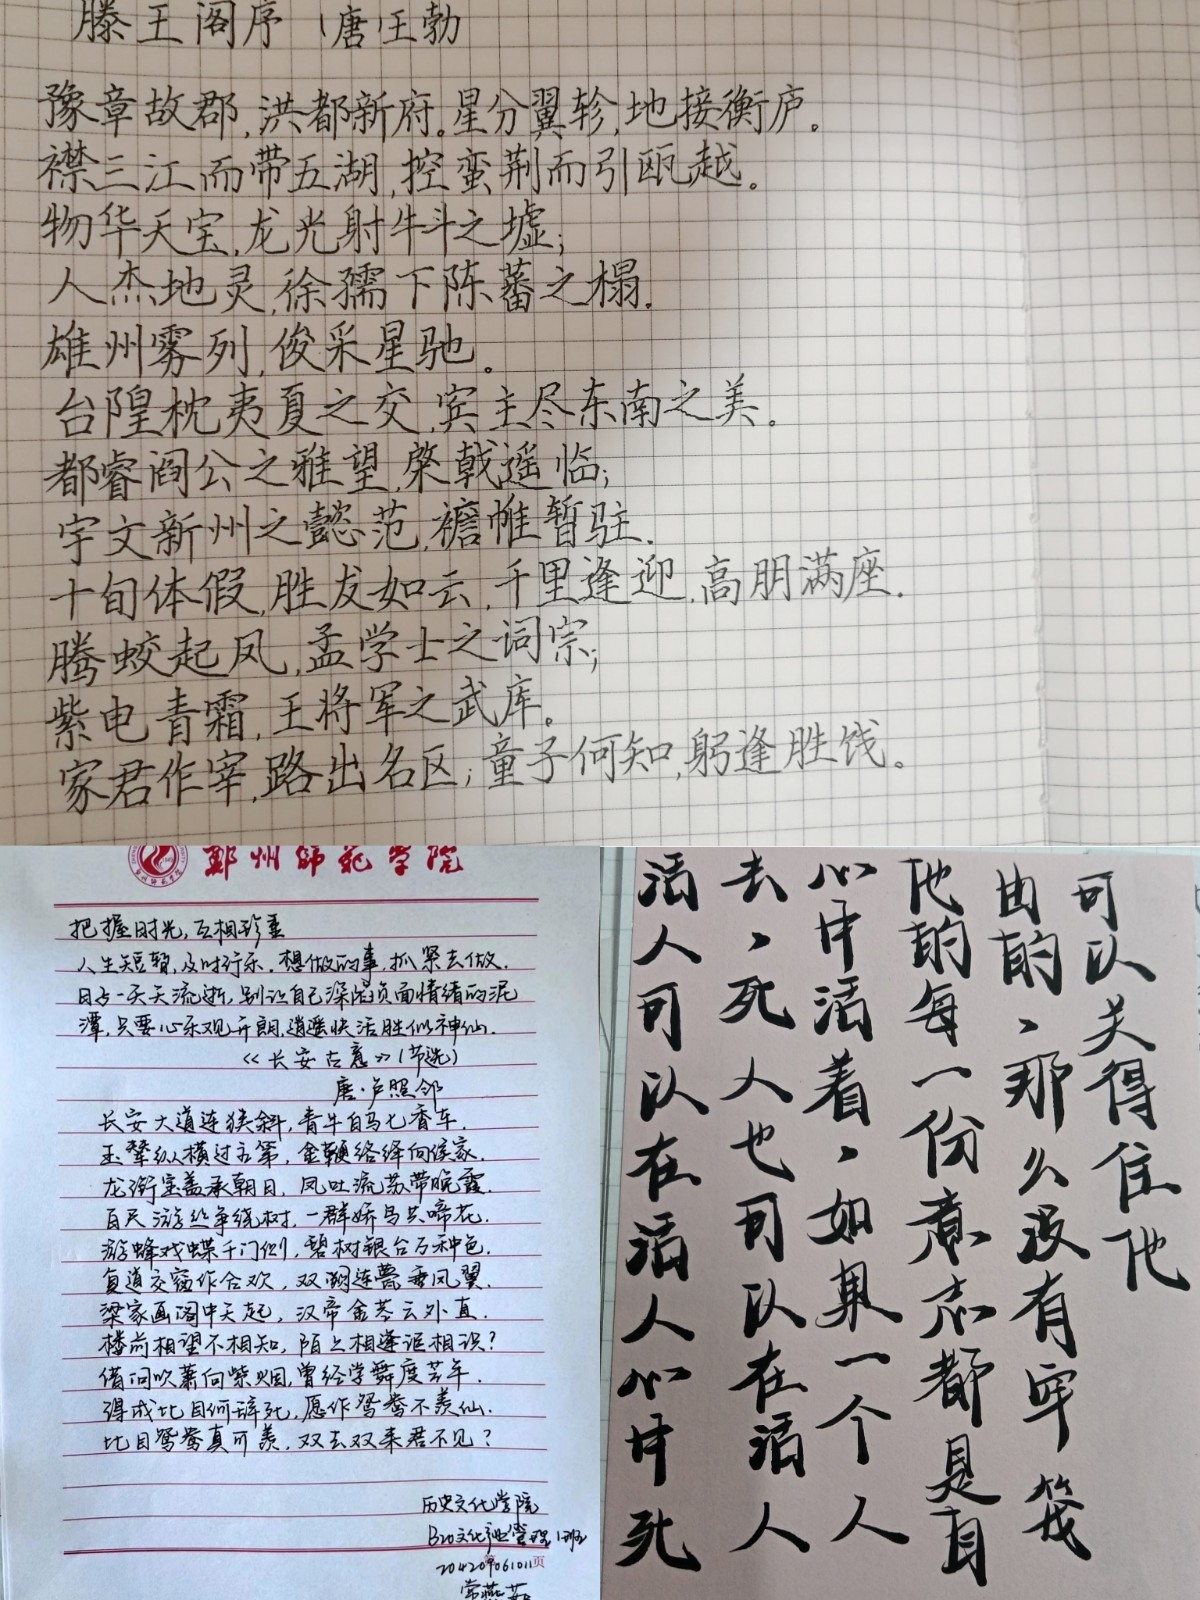 滕王阁序 (唐)王勃
豫章故郡,洪都新府。星分翼轸,地接衡庐。
襟三江而带五湖,控蛮荆而引瓯越。
物华天宝,龙光射牛斗之墟;
人杰地灵,徐孺下陈蕃之榻.
雄州雾列,俊采星驰。
台隍枕夷夏之交,宾主尽东南之美。
都睿阎公之雅望,棨戟遥临;
宇文新州之懿范,襜帷暂驻.
十旬体假,胜友如云,千里逢迎,高朋满座.
腾蛟起凤,孟学士之词宗;
紫电青霜,王将军之武库。
家君作宰,路出名区;童子何知,躬逢胜饯。
郑州师范学院
把握时光,互相珍重
人生短暂,及时行乐.想做的事,抓紧去做.
日子一天天流逝,别让自己深陷负面情绪的泥
潭,只要心乐观开朗,逍遥快活胜似神仙.
《长安古意》(节选)
唐·卢照邻
长安大道连狭斜,青牛白马七香车.
玉辇纵横过主第,金鞭络绎向侯家.
龙衔宝盖承朝日,凤吐流苏带晚霞.
百尺游丝争绕树,一群娇鸟共啼花.
游蜂戏蝶千门侧,碧树银台万种色.
复道交窗作合欢,双阙连甍垂凤翼.
梁家画阁中天起,汉帝金茎云外直.
楼前相望不相知,陌上相逢讵相识?
借问吹箫向紫烟,曾经学舞度芳年.
得成比目何辞死,愿作鸳鸯不羡仙.
比目鸳鸯真可羡,双去双来君不见?
历史文化学院
B20文化产业管理1班
204209061011
页
活人可以在活人心中死
去,死人也可以在活人
心中活着,如果一个人
他的每一份意志都是自
由的,那么没有牢笼
可以关得住他